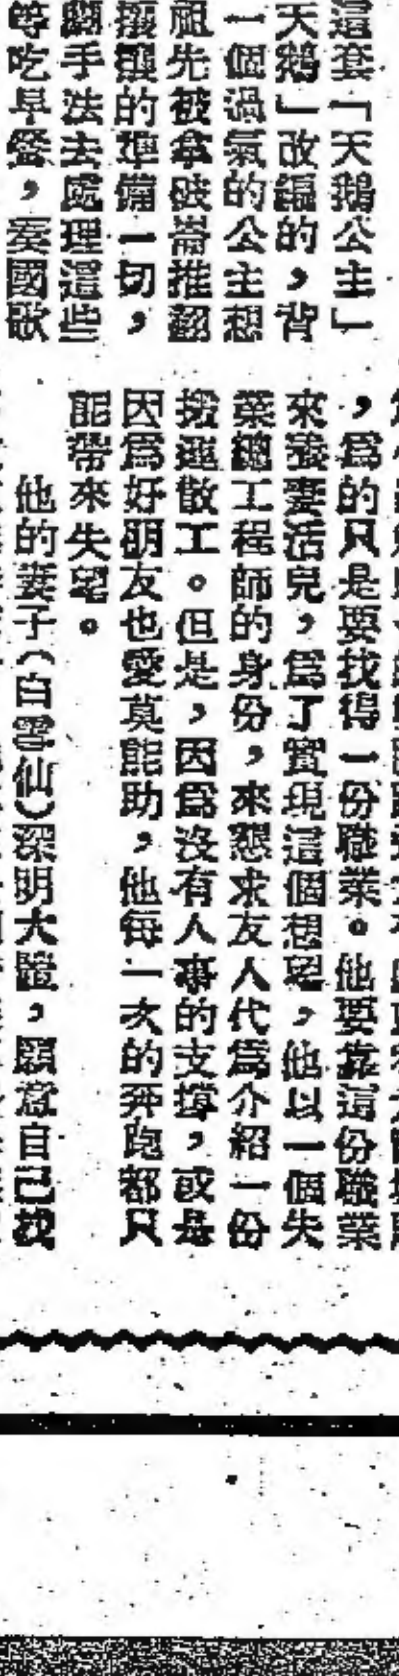 這套「天鵝公主」
天鵝」改編的，背
一個過氣的公主想
祖先被拿破崙推翻
的準備一切，
手法去處理這些
等吃早餐，愛國歌
，爲的只是要找得一份職業。他要靠這份職業
來養妻活兒，爲了實現這個想望，他以一個失
業總工程師的身份，來懇求友人代爲介紹一份
搬運散工。但是，因爲沒有人事的支撐，或是
因爲好朋友也愛莫能助，他每一次的奔跑都只
能帶來失望。
他的妻子（白雲仙）深明大體，願意自己找